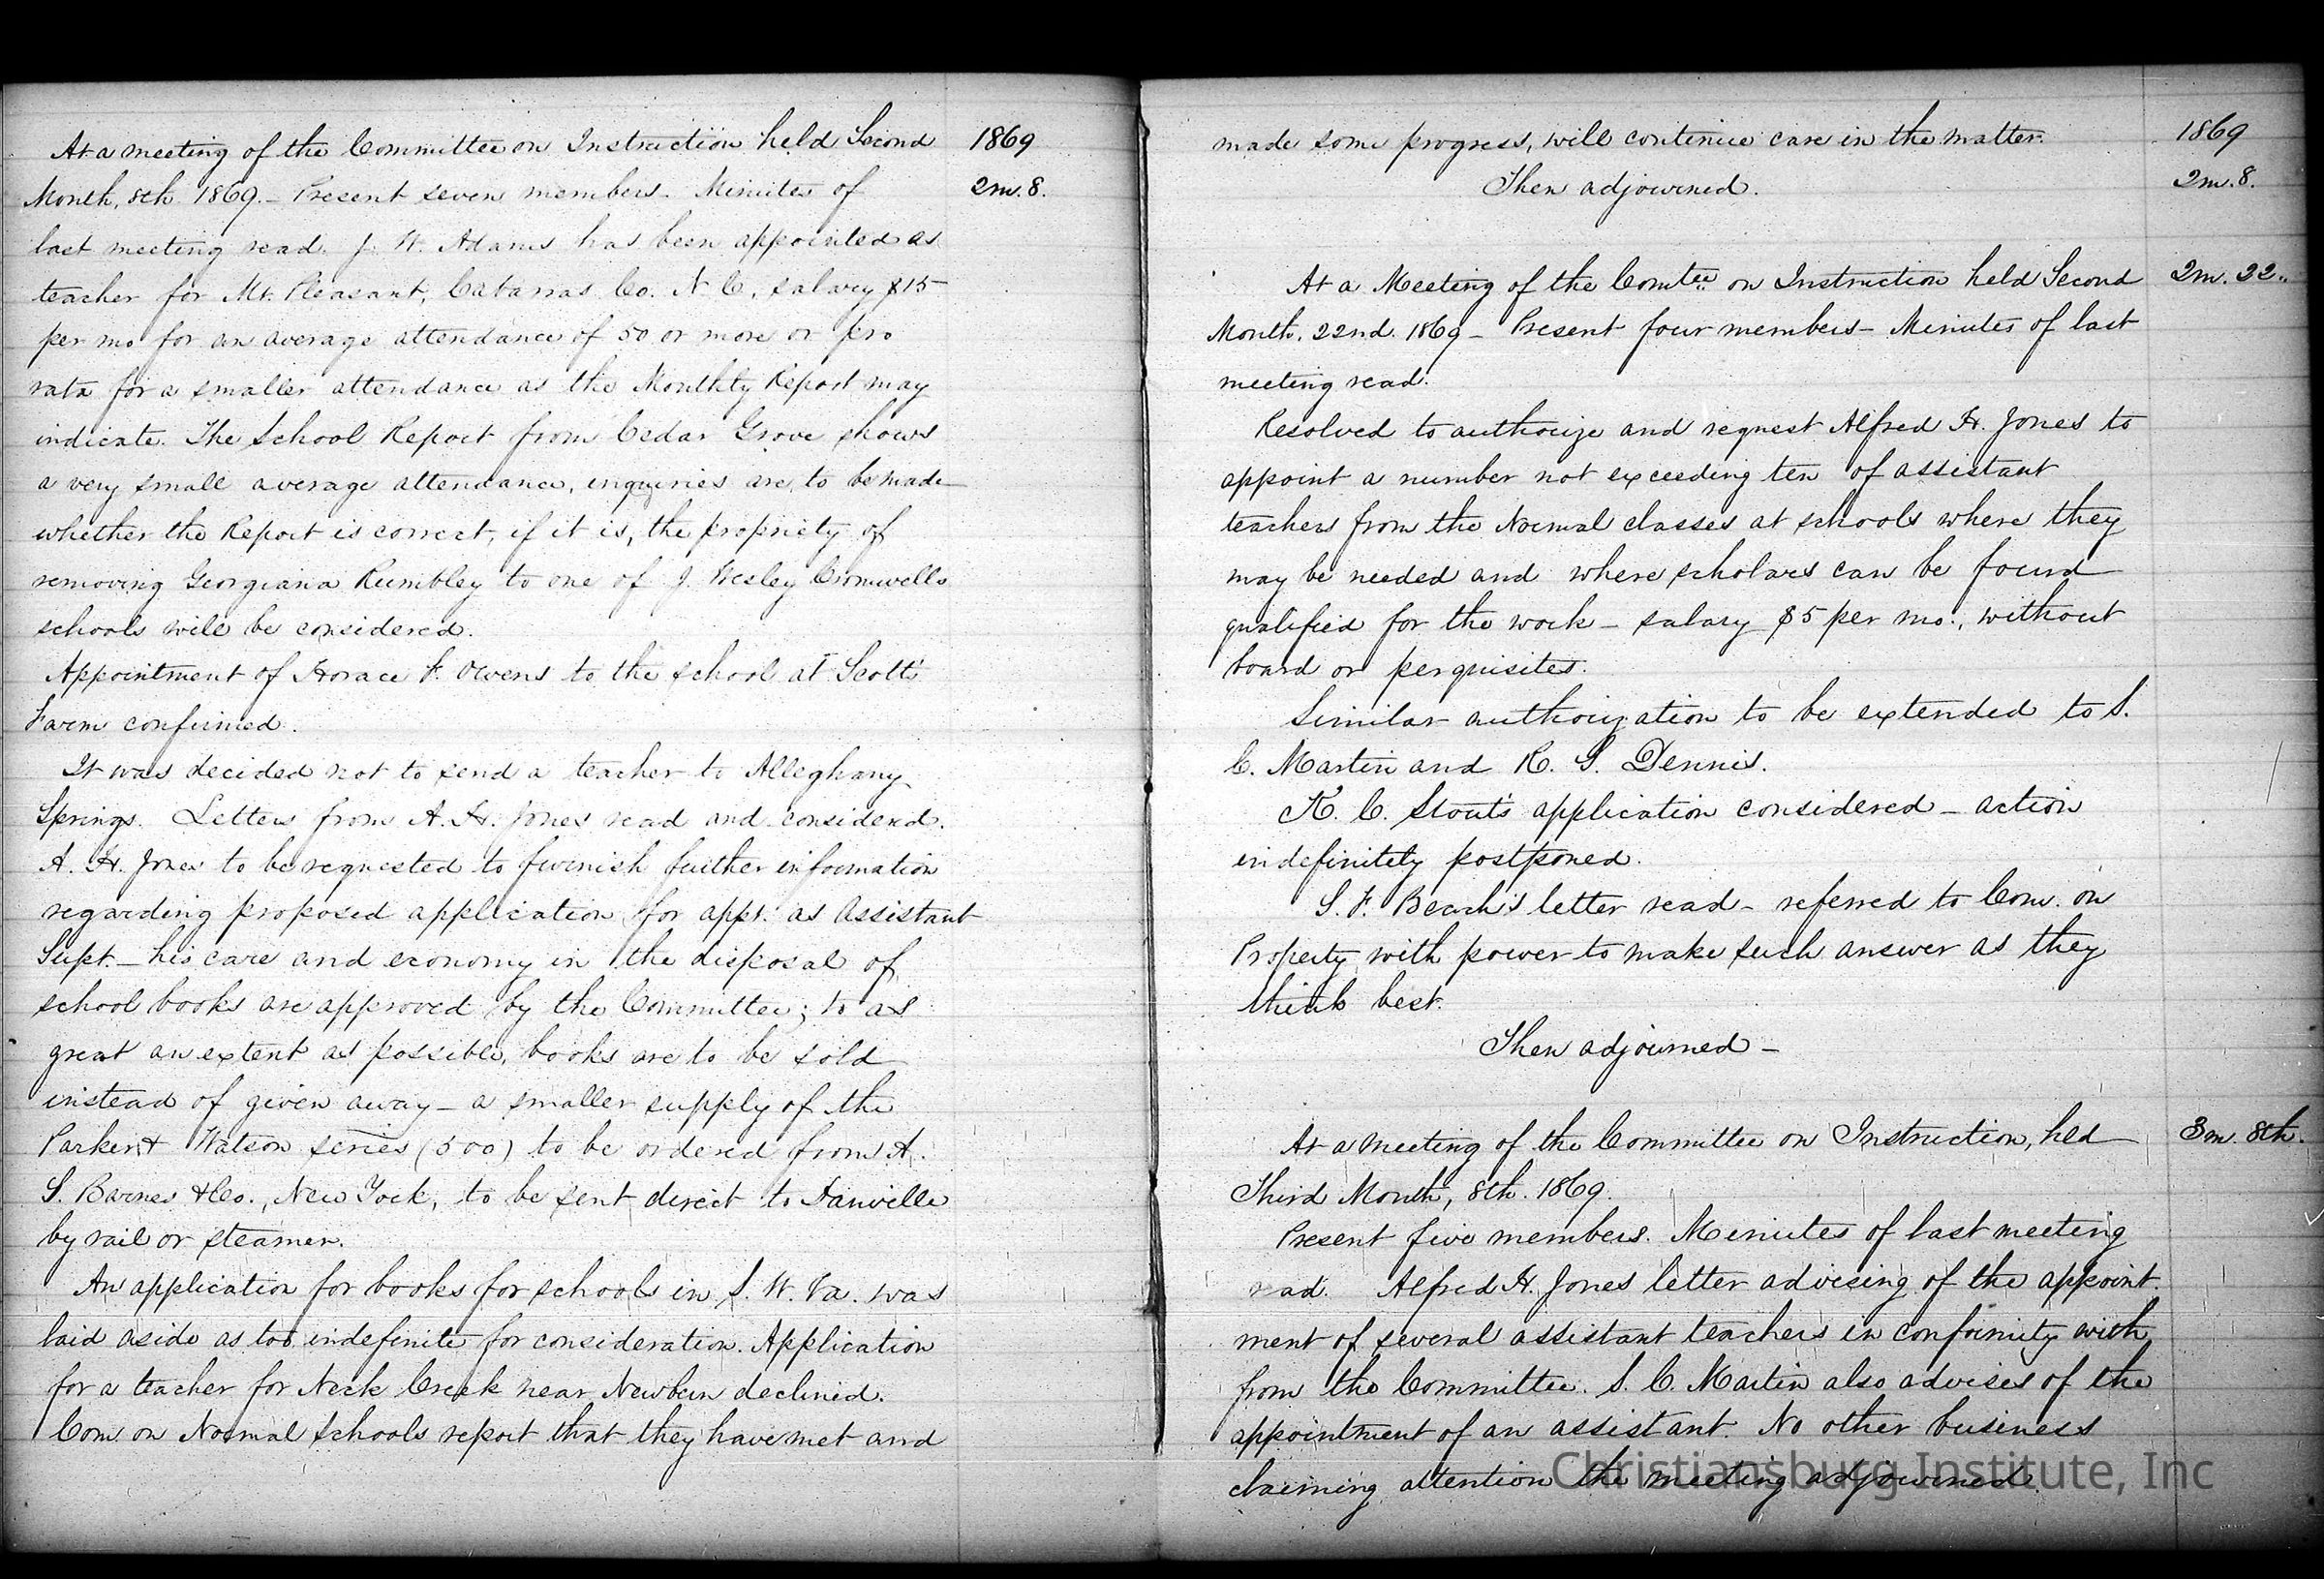 At a meeting of the Committee on Instruction held Second
1869
Month, 8th 1869. – Present seven members. Minutes of
2m. 8.
last meeting read. J. W. Adams has been appointed as
teacher for Mt. Pleasant, Cabarras Co. N C, salary $15
per mo for an average attendance of 50 or more or pro
rata for a smaller attendance as the Monthly Report may
indicate. The School Report from Cedar Grove shows
a very small average attendance, inquiries are to be made
whether the Report is correct, if it is, the propriety of
removing Georgiana Rumbley to one of J. Wesley Cromwells
schools will be considered.
Appointment of Horace F. Owens to the school at Scott's
Farm confirmed.
It was decided not to send a teacher to Alleghany
Springs. Letters from A. H. Jones read and considered.
A. H. Jones to be requested to furnish further information
regarding proposed application for appt. as Assistant
Supt. – his care and economy in the disposal of
school books are approved by the Committee; to as
great an extent as possible, books are to be sold
instead of given away – a smaller supply of the
Parker & Watson series (500) to be ordered from A.
S. Barnes & Co., New York, to be sent direct to Danville
by rail or steamer.
An application for books for schools in S. W. Va. was
laid aside as too indefinite for consideration. Application
for a teacher for Neck Creek near Newbern declined.
Com on Normal Schools report that they have met and
made some progress, will continue care in the matter.
1869
Then adjourned.
2m. 8.
At a Meeting of the Comtee on Instruction held Second
2m. 22..
Month, 22nd. 1869 – Present four members – Minutes of last
meeting read.
Resolved to authorize and request Alfred H. Jones to
appoint a number not exceeding ten of assistant
teachers from the Normal classes at schools where they
may be needed and where scholars can be found
qualified for the work – salary $5 per mo., without
board or perquisites.
Similar authorization to be extended to S.
C. Martin and R. G. Dennis.
K. C. Stout's application considered – action
indefinitely postponed.
S. F. Beach's letter read – referred to Com. on
Property with power to make such answer as they
think best.
Then adjourned –
At a meeting of the Committee on Instruction, held
3m. 8th.
Third Month, 8th. 1869.
Present five members. Minutes of last meeting
read. Alfred H. Jones letter advising of the appoint-
ment of several assistant teachers in conformity with
from the Committee. S. C. Martin also advises of the
appointment of an assistant. No other business
claiming attention the meeting adjourned.
Christiansburg Institute, Inc